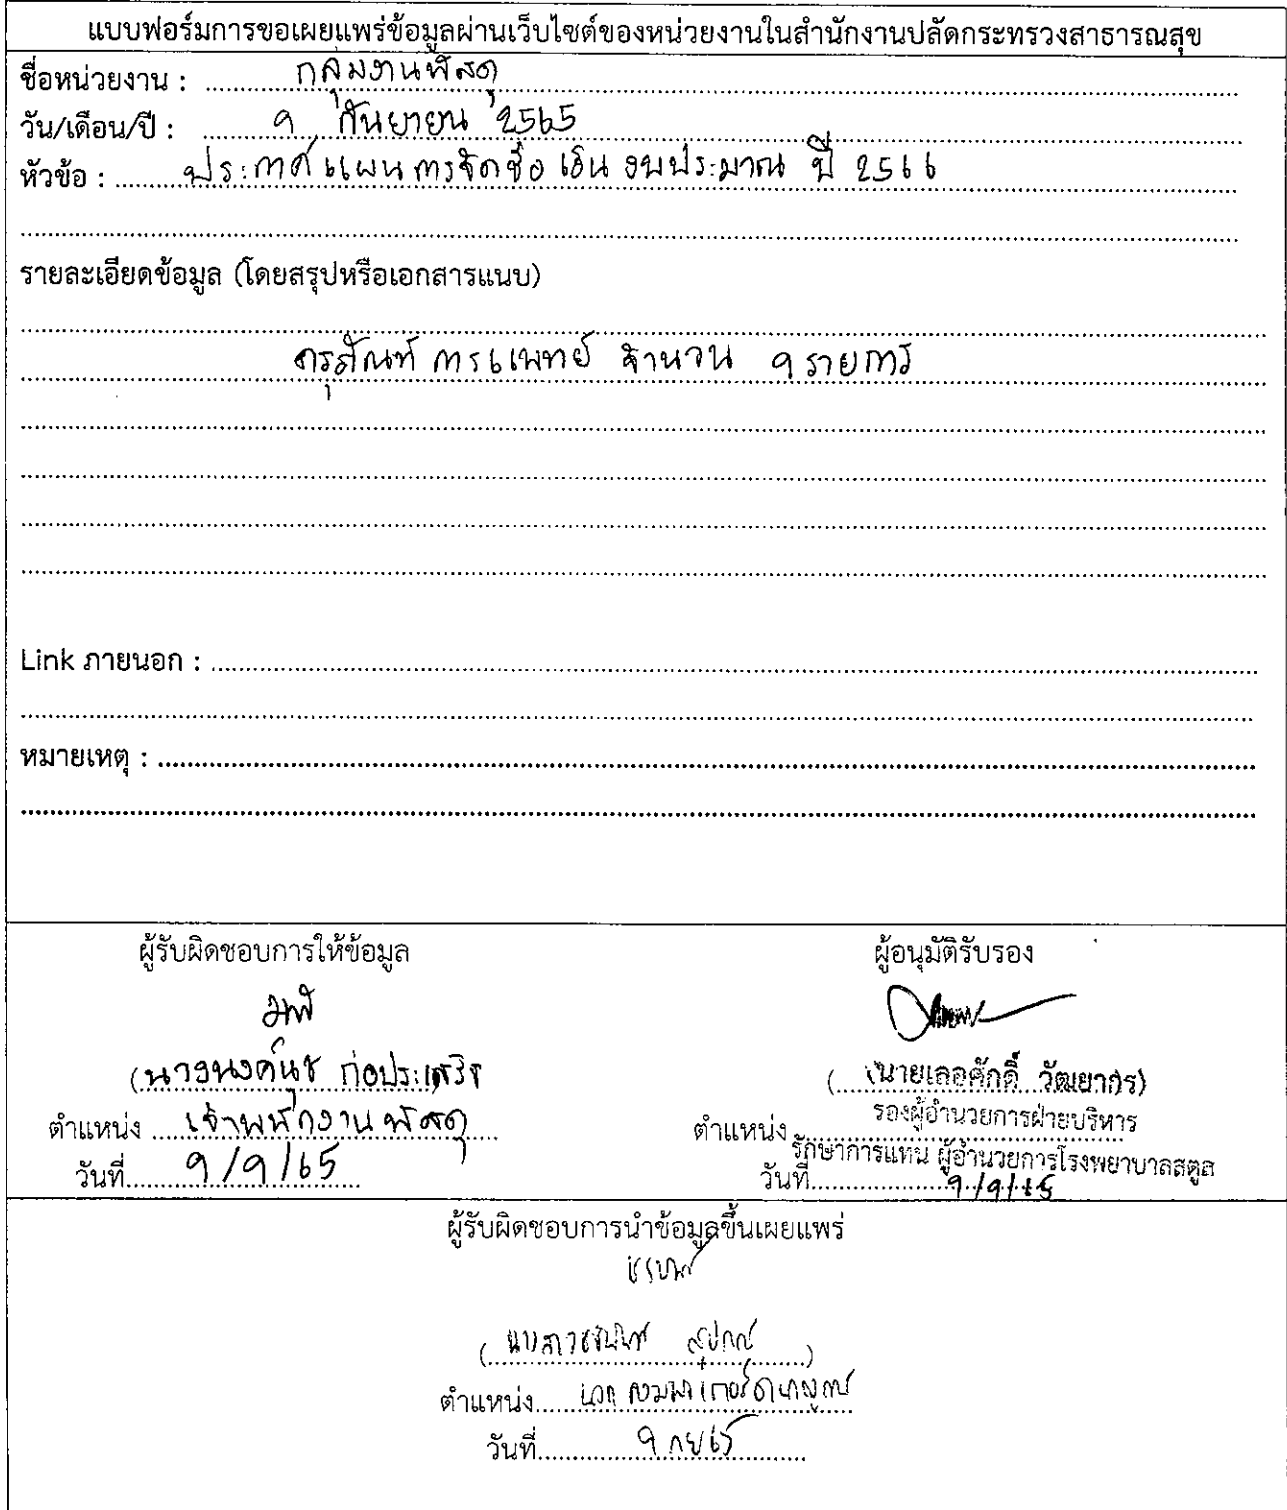 แบบฟอร์มการขอเผยแพร่ข้อมูลผ่านเว็บไซต์ของหน่วยงานในสำนักงานปลัดกระทรวงสาธารณสุข
ชื่อหน่วยงาน : กลุ่มงานพัสดุ
วัน/เดือน/ปี : 9 กันยายน 2565
หัวข้อ : ประกาศแผนการจัดซื้อ เงินงบประมาณ ปี 2566
รายละเอียดข้อมูล (โดยสรุปหรือเอกสารแนบ)
ครุภัณฑ์ การแพทย์ จำนวน 9 รายการ
Link ภายนอก :
หมายเหตุ :
ผู้รับผิดชอบการให้ข้อมูล
ผู้อนุมัติรับรอง
(นางนงค์นุช ก่อประเสริฐ
(นายเลอศักดิ์ วัฒยากร)
ตำแหน่ง เจ้าพนักงานพัสดุ
ตำแหน่ง รองผู้อำนวยการฝ่ายบริหาร
รักษาการแทน ผู้อำนวยการโรงพยาบาลสตูล
วันที่ 9/9/65
วันที่ 9/9/65
ผู้รับผิดชอบการนำข้อมูลขึ้นเผยแพร่
ตำแหน่ง
วันที่ 9 กย 65